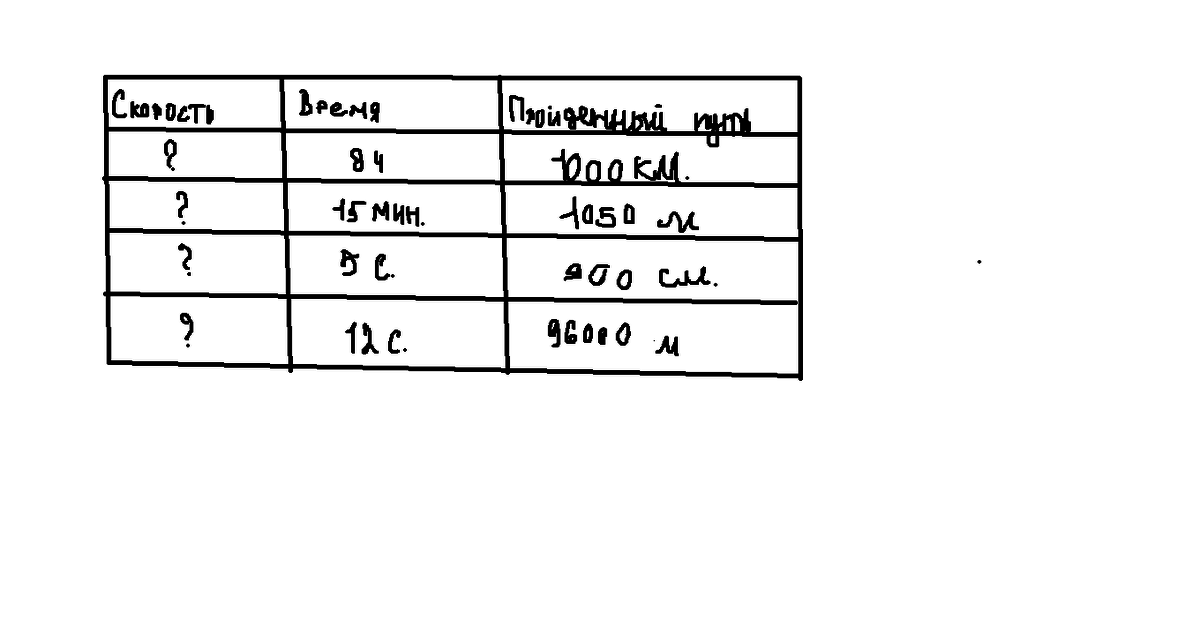 Скорость Время Пройденный путь
? 8ч 1000 км.
? 15 мин. 1050 м
? 5 с. 900 см.
? 12 с. 96000 м